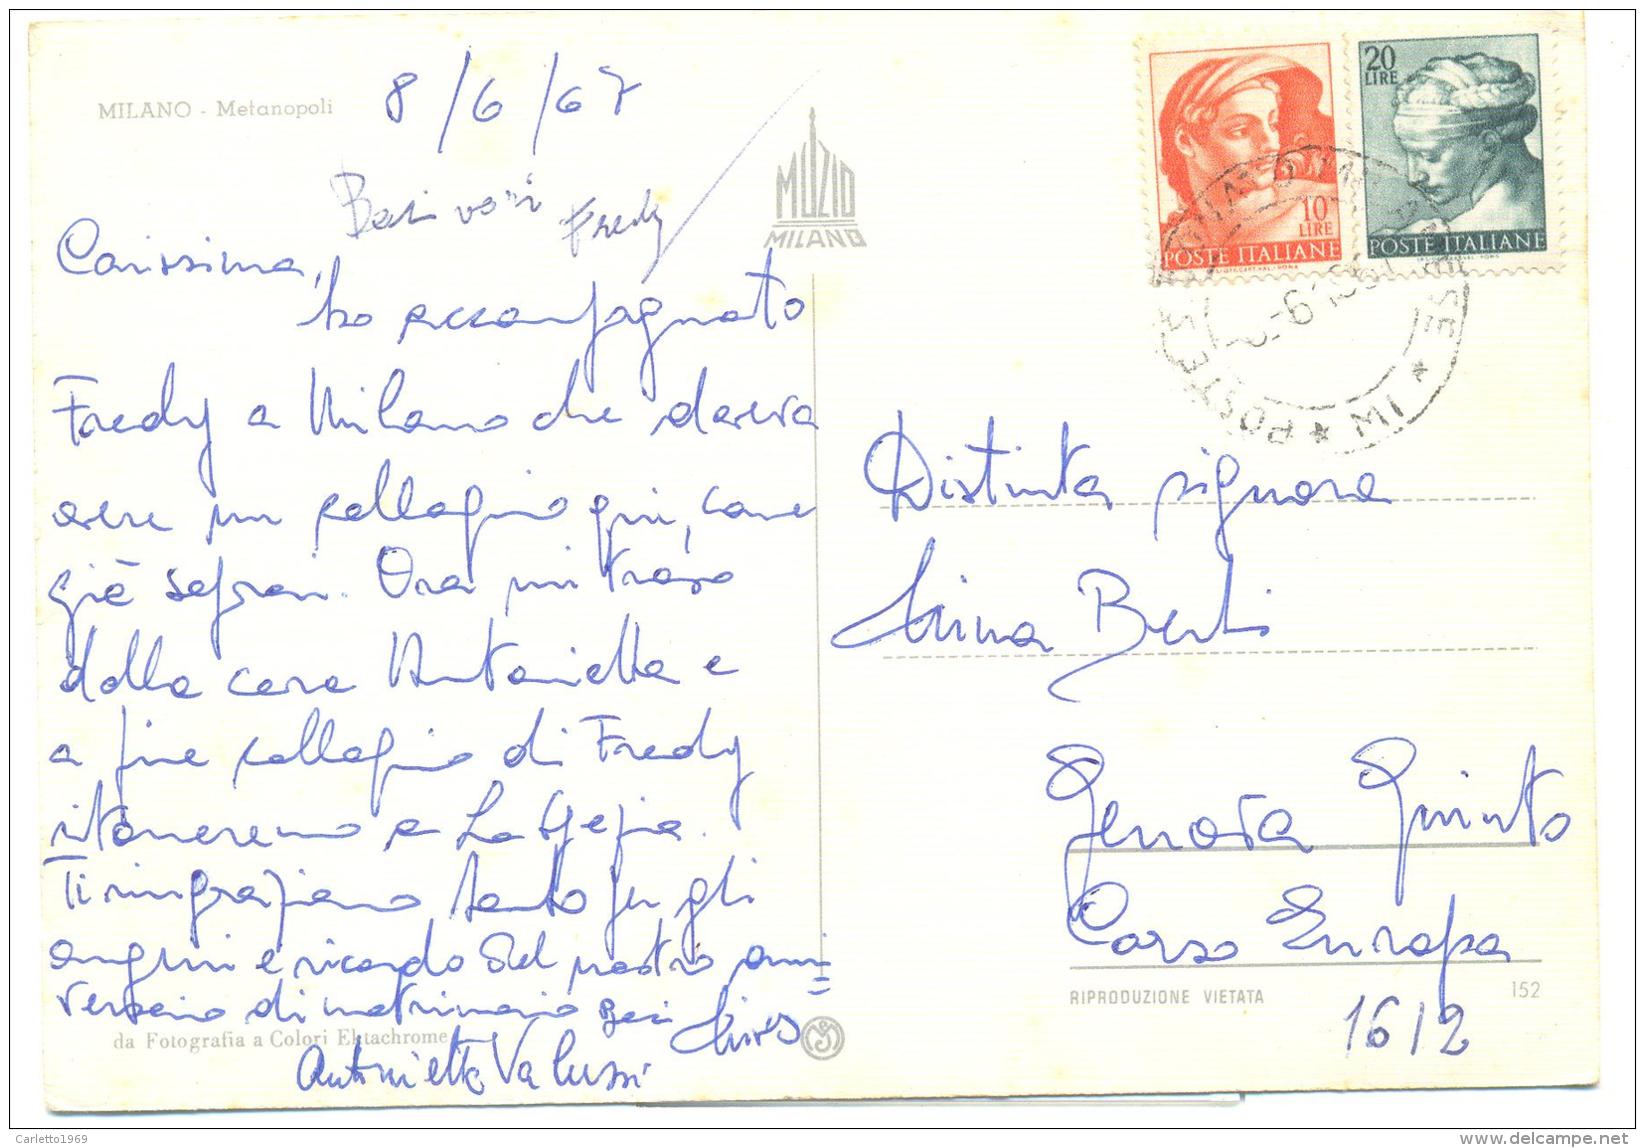 MILANO - Metanopoli
8/6/67
Baci vari
Fredy
Carissima,
ho accompagnato
Fredy a Milano che doveva
avere un collaquio qui, come
già saprai. Ora mi trovo
dalla cara Antonietta e
a fine collaquio di Fredy
ritorneremo a La Spezia.
Ti ringraziamo tanto per gli
auguri e ricordo del nostro anni=
versario di matrimonio Baci
Antonietta Valussi
da Fotografia a Colori Ektachrome
MUZIO
MILANO
10
LIRE
POSTE ITALIANE
20
LIRE
POSTE ITALIANE
POSTE
MI
Distinta signora
Berti
Genova Quinto
Corso Europa
16/2
RIPRODUZIONE VIETATA
152
Carletto1969
www.delcampe.net